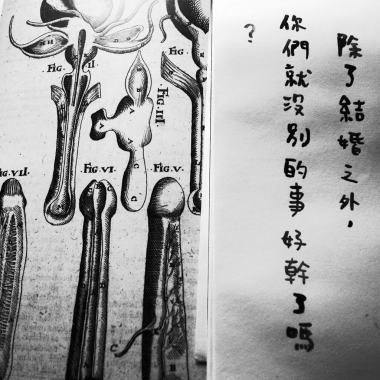 除了結婚之外，
你們就沒別的事好幹了嗎
？
FIG. II
FIG. III
FIG. VII
FIG. VI
FIG. V.